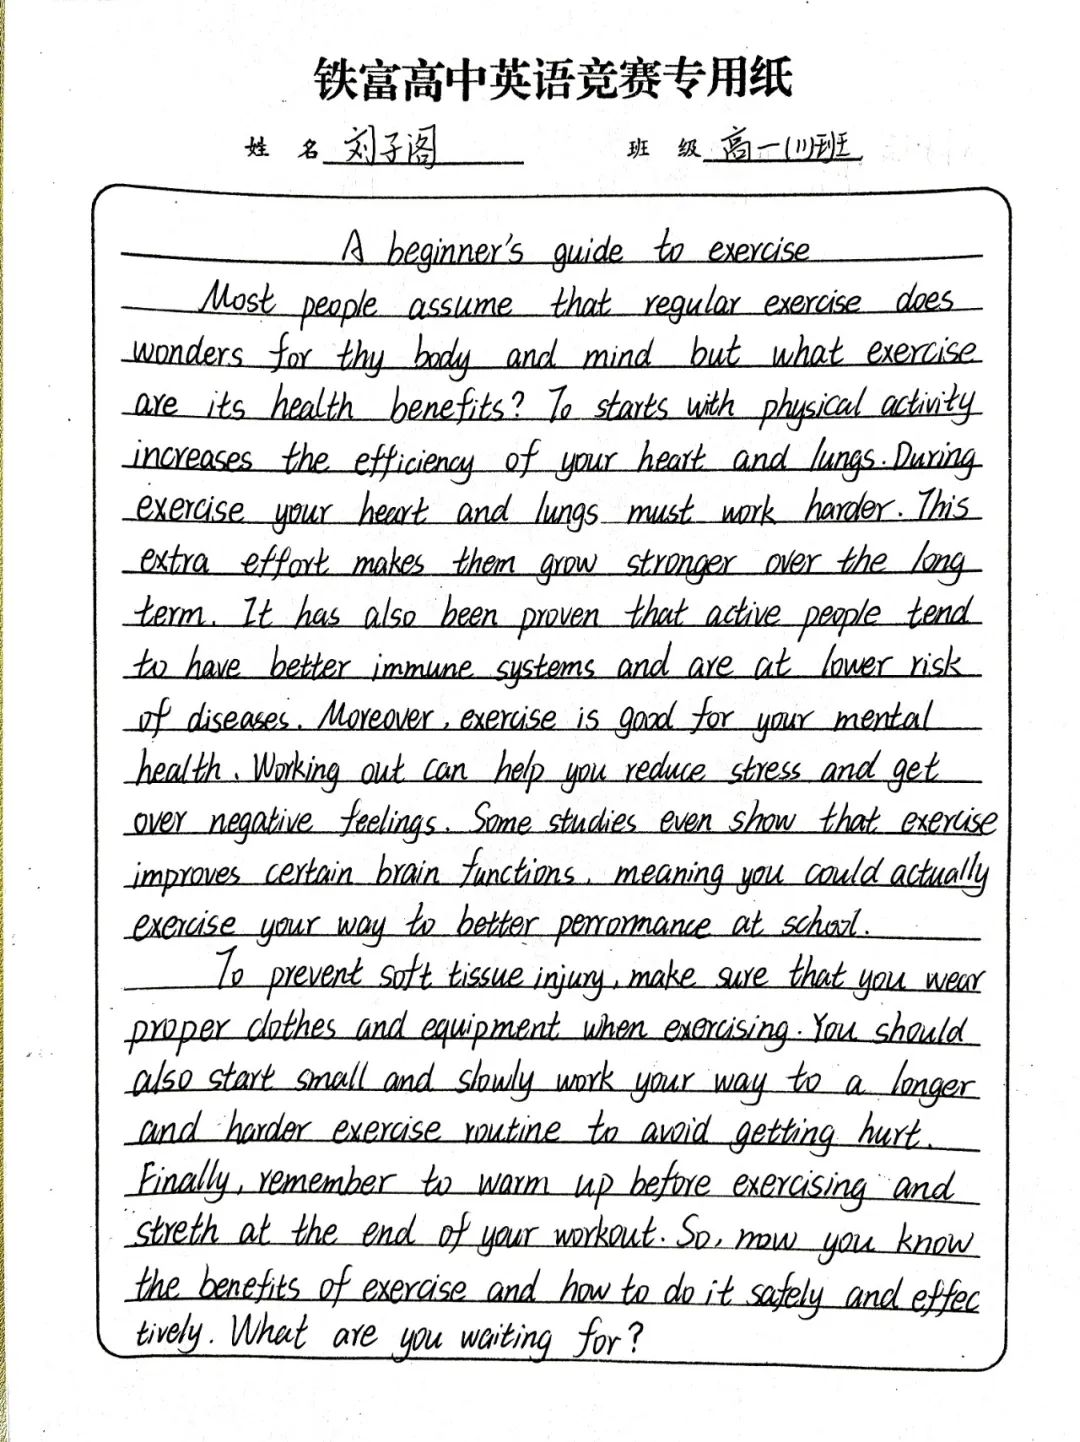 铁富高中英语竞赛专用纸
姓 名 刘子阁 班 级 高一(11)班
A beginner's guide to exercise
Most people assume that regular exercise does
wonders for thy body and mind but what exercise
are its health benefits? To starts with physical activity
increases the efficiency of your heart and lungs. During
exercise your heart and lungs must work harder. This
extra effort makes them grow stronger over the long
term. It has also been proven that active people tend
to have better immune systems and are at lower risk
of diseases. Moreover, exercise is good for your mental
health. Working out can help you reduce stress and get
over negative feelings. Some studies even show that exercise
improves certain brain functions, meaning you could actually
exercise your way to better perrormance at school.
To prevent soft tissue injury, make sure that you wear
proper clothes and equipment when exercising. You should
also start small and slowly work your way to a longer
and harder exercise routine to avoid getting hurt.
Finally, remember to warm up before exercising and
streth at the end of your workout. So, now you know
the benefits of exercise and how to do it safely and effec
tively. What are you waiting for?